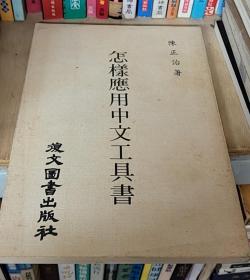 陳正治著
怎樣應用中文工具書
復文圖書出版社